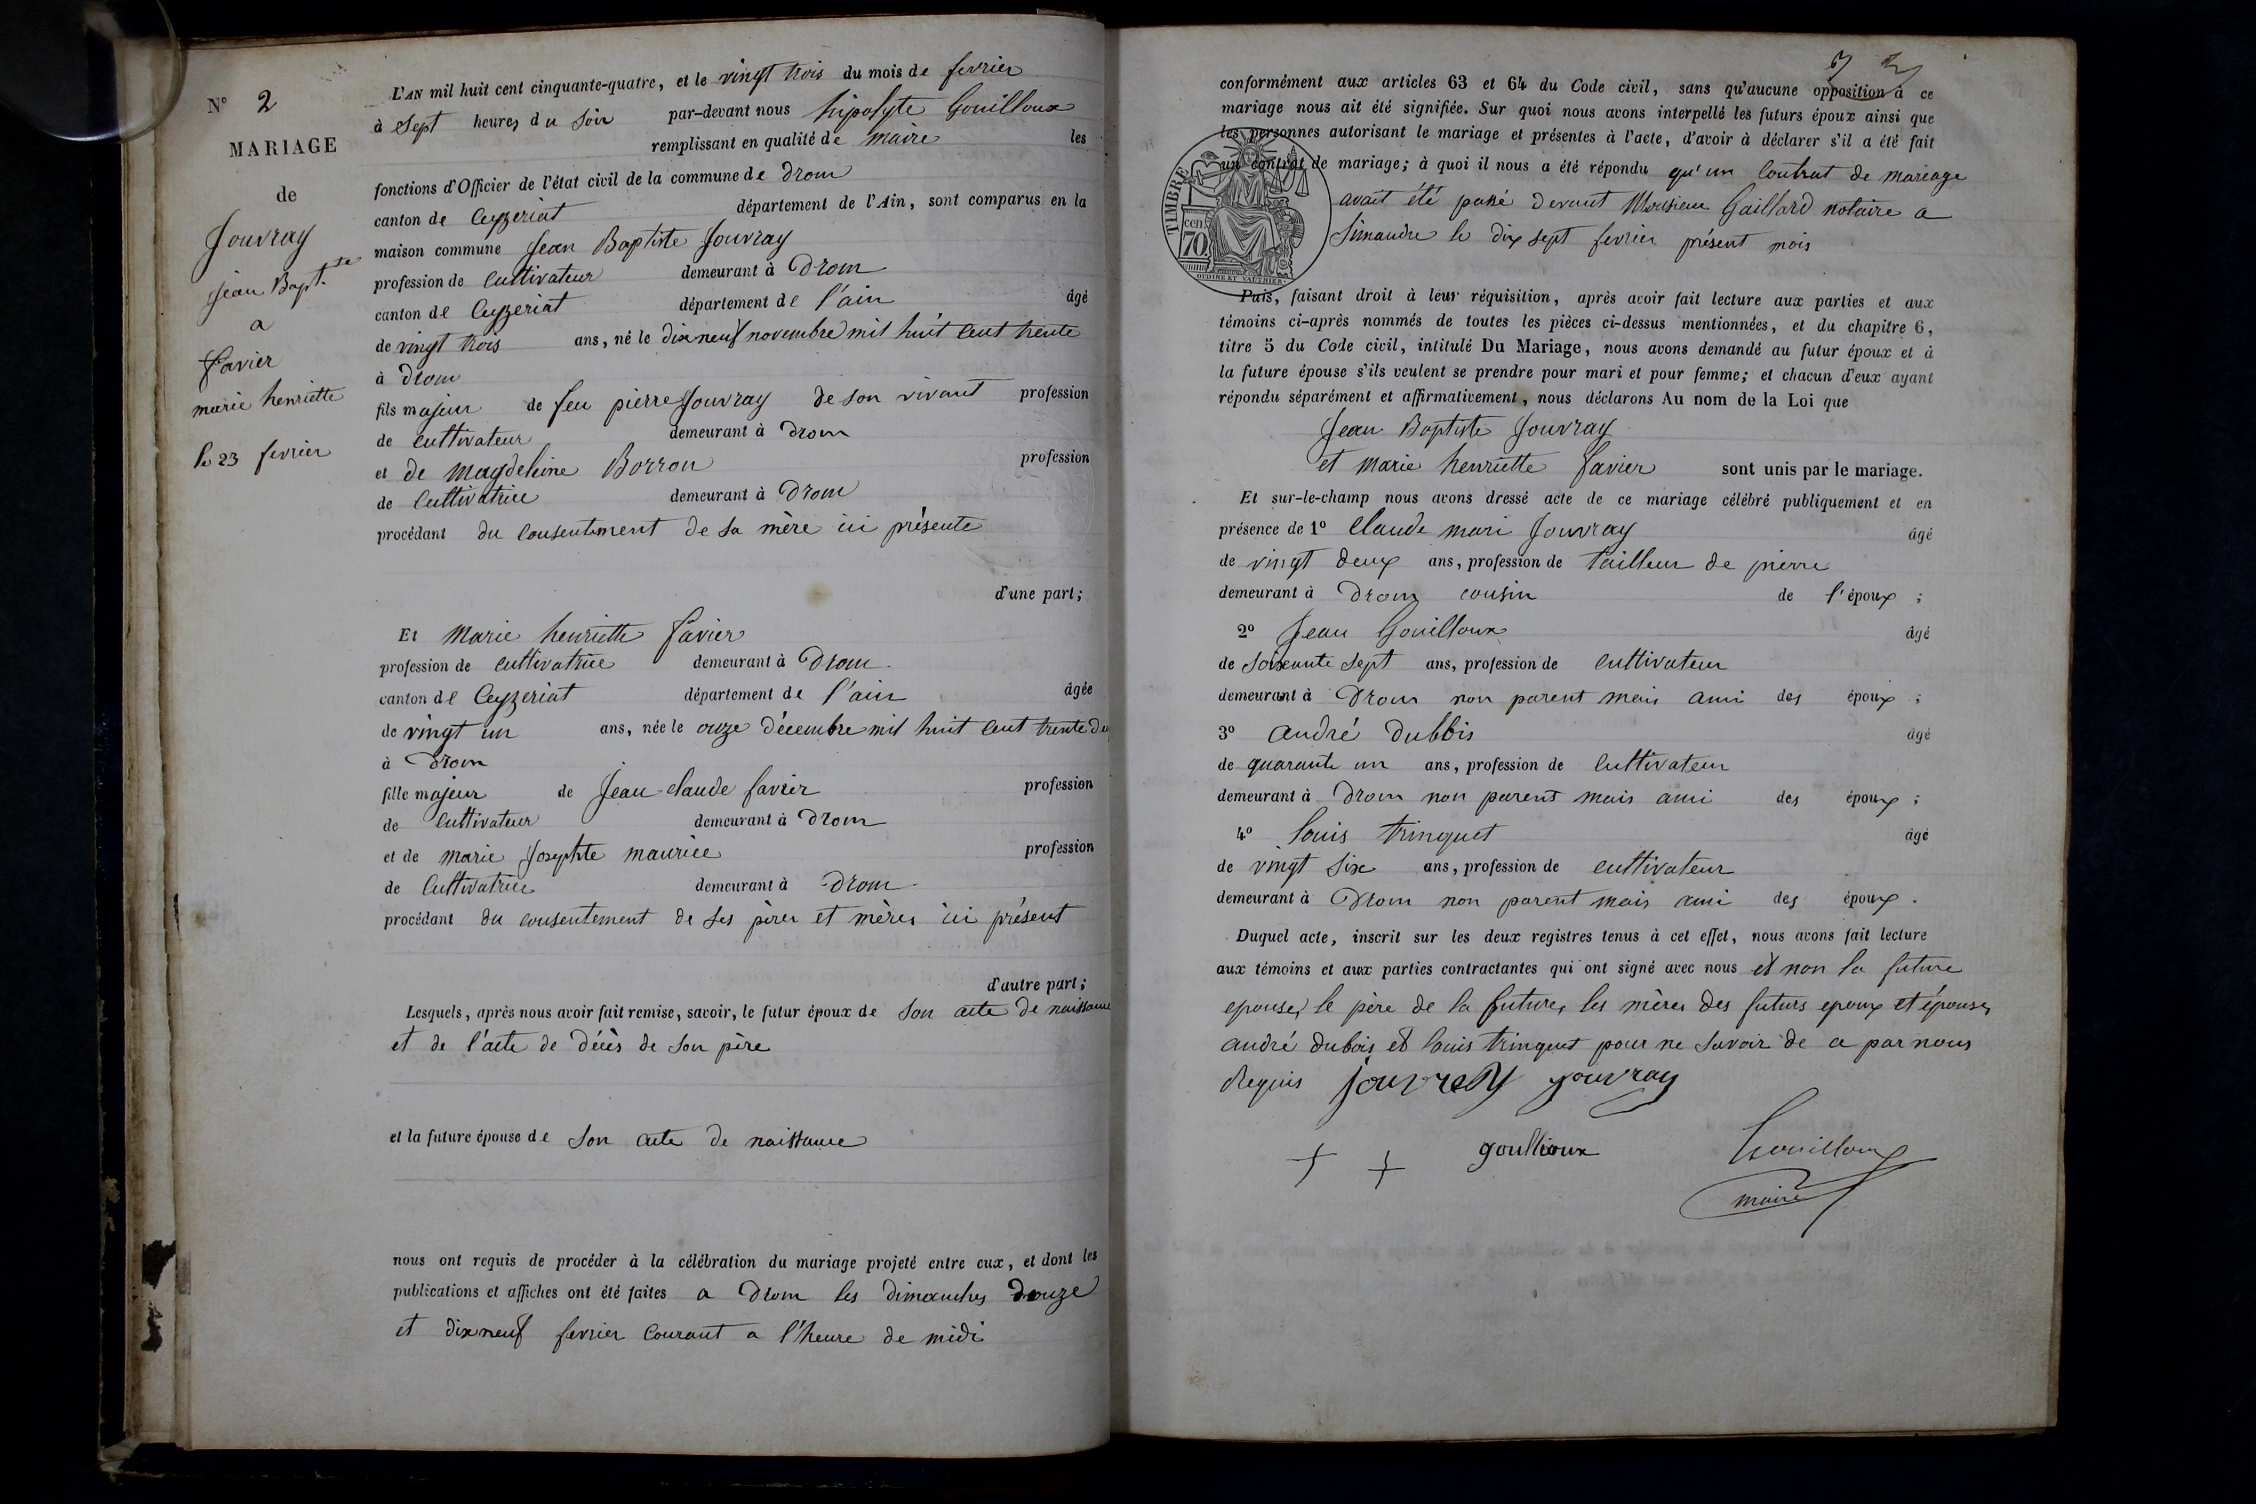 N° 2
MARIAGE
de
Jouvray
Jean Bapt.te
a
favier
marie henriette
le 23 fevrier
L'AN mil huit cent cinquante-quatre, et le vingt trois du mois de fevrier
à sept heures du soir par-devant nous hipolyte Gouilloux
remplissant en qualité de maire les
fonctions d'Officier de l'état civil de la commune de drom
canton de Ceyzeriat département de l'Ain, sont comparus en la
maison commune Jean Baptiste Jouvray
profession de cultivateur demeurant à Drom
canton de Ceyzeriat département de l'ain âgé
de vingt trois ans, né le dix neuf novembre mil huit cent trente
à drom
fils majeur de feu pierre Jouvray de son vivant profession
de cultivateur demeurant à drom
et de magdeleine Borron profession
de Cultivatrice demeurant à Drom
procédant du consentement de sa mère ici présente
d'une part;
Et Marie henriette favier
profession de cultivatrice demeurant à Drom
canton de Ceyzeriat département de l'ain âgée
de vingt un ans, née le onze décembre mil huit cent trente deu
à Drom
fille majeur de Jean claude favier profession
de cultivateur demeurant à Drom
et de marie Josephte maurice profession
de Cultivatrice demeurant à Drom
procédant du consentement de ses pères et mères ici présent
d'autre part;
Lesquels, après nous avoir fait remise, savoir, le futur époux de son acte de naissance
et de l'acte de décès de son père
et la future épouse de son acte de naissance
nous ont requis de procéder à la célébration du mariage projeté entre eux, et dont les
publications et affiches ont été faites a Drom les dimanches douze
et dix neuf fevrier courant a l'heure de midi
conformément aux articles 63 et 64 du Code civil, sans qu'aucune opposition à ce
mariage nous ait été signifiée. Sur quoi nous avons interpellé les futurs époux ainsi que
les personnes autorisant le mariage et présentes à l'acte, d'avoir à déclarer s'il a été fait
un contrat de mariage; à quoi il nous a été répondu qu'un contrat de mariage
avait été passé devant Monsieur Gaillard notaire a
Simandre le dix sept fevrier présent mois
TIMBRE
CCD
70.
OUDINE ET VAUTHIER
Puis, faisant droit à leur réquisition, après avoir fait lecture aux parties et aux
témoins ci-après nommés de toutes les pièces ci-dessus mentionnées, et du chapitre 6,
titre 5 du Code civil, intitulé Du Mariage, nous avons demandé au futur époux et à
la future épouse s'ils veulent se prendre pour mari et pour femme; et chacun d'eux ayant
répondu séparément et affirmativement, nous déclarons Au nom de la Loi que
Jean Baptiste Jouvray
et Marie henriette favier sont unis par le mariage.
Et sur-le-champ nous avons dressé acte de ce mariage célébré publiquement et en
présence de 1° Claude mari Jouvray âgé
de vingt deux ans, profession de tailleur de pierre
demeurant à Drom cousin de l'époux ;
2° Jean Gouilloux âgé
de soixante sept ans, profession de cultivateur
demeurant à Drom non parent mais ami des époux ;
3° André dubbis âgé
de quarante un ans, profession de cultivateur
demeurant à Drom non parent mais ami des époux ;
4° Louis trinquet âgé
de vingt six ans, profession de cultivateur
demeurant à Drom non parent mais ami des époux .
Duquel acte, inscrit sur les deux registres tenus à cet effet, nous avons fait lecture
aux témoins et aux parties contractantes qui ont signé avec nous et non la future
epouse, le père de la future, les mères des futurs epoux et épouses,
andré dubois et louis trinquet pour ne savoir de ce par nous
Requis jouvray jouvray
goullioux Gouilloux
maire